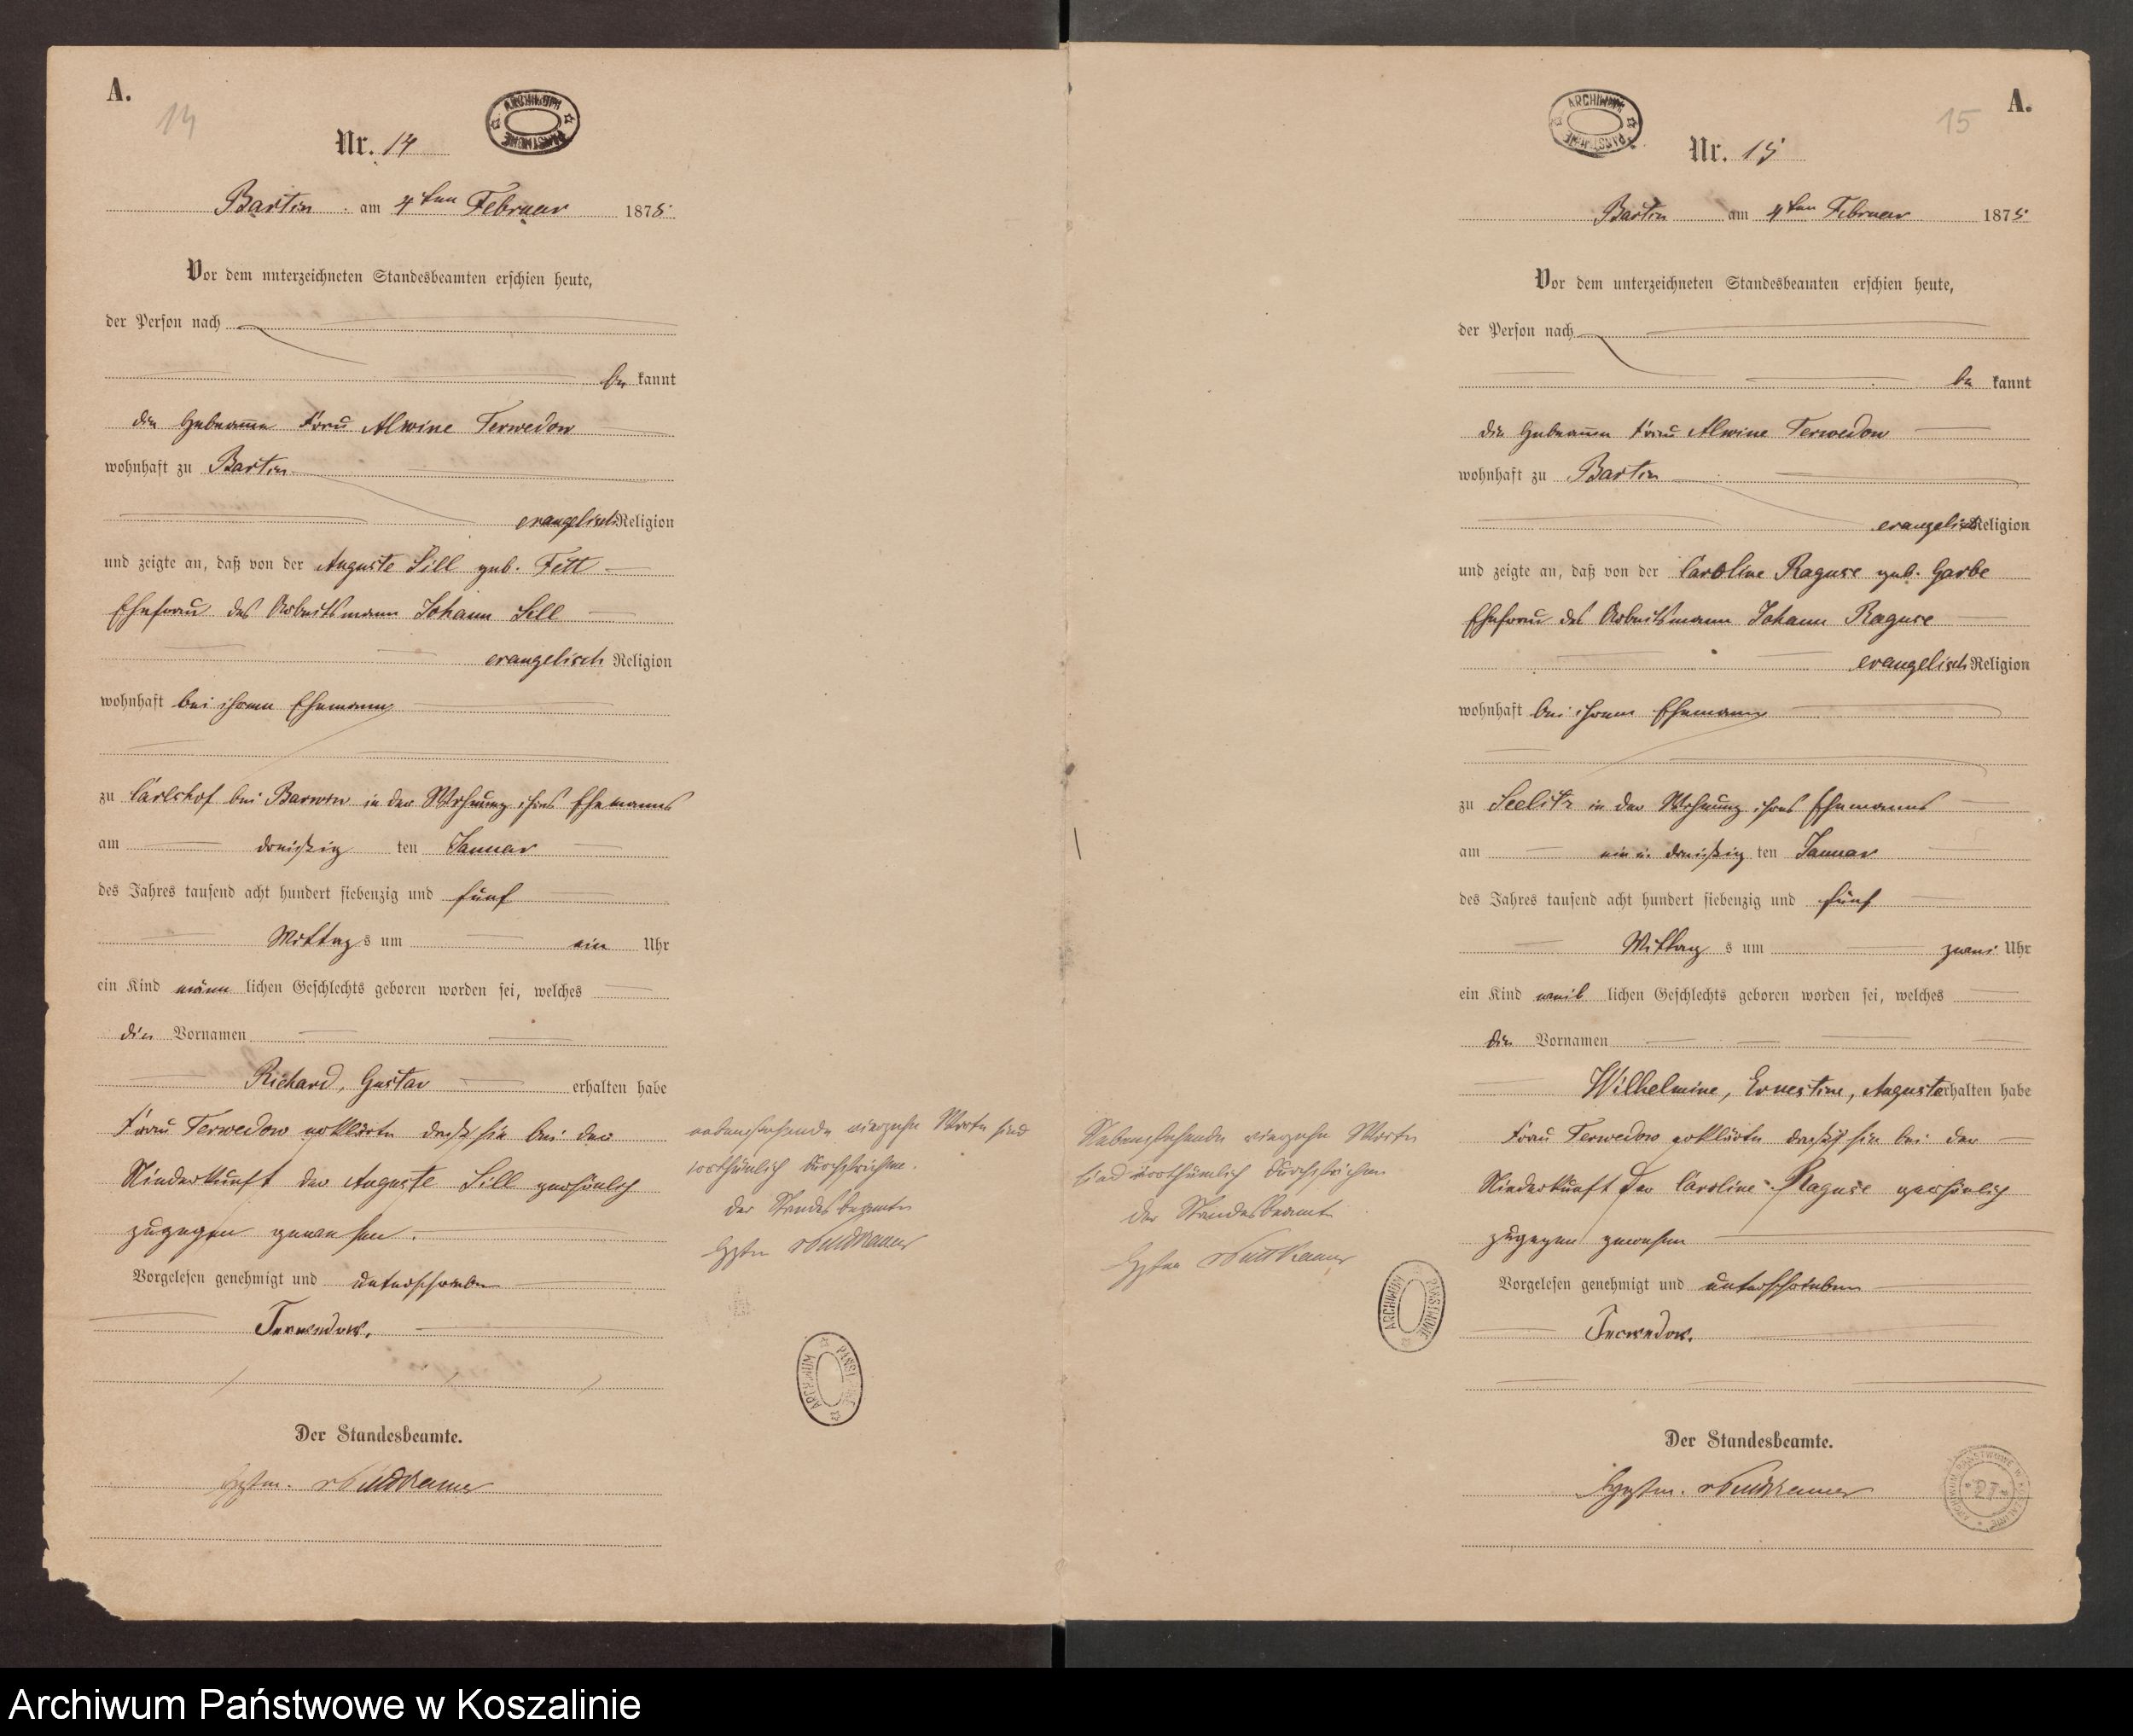 A.
14
ARCHIWUM PAŃSTWOWE
Nr. 14
Bartin am 4ten Februar 1875
Vor dem unterzeichneten Standesbeamten erschien heute,
der Person nach
be kannt
die Hebamme Frau Alwine Terwedow
wohnhaft zu Bartin
evangelisch Religion
und zeigte an, daß von der Auguste Sill geb. Fett
Ehefrau des Arbeitsmann Johann Sill
evangelisch Religion
wohnhaft bei ihrem Ehemann
zu Carlshof bei Barwin in der Wohnung ihres Ehemanns
am dreißig ten Januar
des Jahres tausend acht hundert siebenzig und fünf
Mittags um ein Uhr
ein Kind männ lichen Geschlechts geboren worden sei, welches
die Vornamen
Richard, Gustav erhalten habe
Frau Terwedow erklärte daß sie bei der
Niederkunft der Auguste Sill persönlich
zugegen gewesen.
Vorgelesen genehmigt und unterschrieben
Terwedow.
Der Standesbeamte.
v Puttkamer
nebenstehende vierzehn Worte sind
irrthümlich durchstrichen.
der Standesbeamte
v Puttkamer
ARCHIWUM PAŃSTWOWE
A.
15
ARCHIWUM PAŃSTWOWE
Nr. 15
Bartin am 4ten Februar 1875
Vor dem unterzeichneten Standesbeamten erschien heute,
der Person nach
be kannt
die Hebamme Frau Alwine Terwedow
wohnhaft zu Bartin
evangelisch Religion
und zeigte an, daß von der Caroline Raguse geb. Garbe
Ehefrau des Arbeitsmann Johann Raguse
evangelisch Religion
wohnhaft bei ihrem Ehemann
zu Seelitz in der Wohnung ihres Ehemanns
am ein u. dreißig ten Januar
des Jahres tausend acht hundert siebenzig und fünf
Mittag s um zwei Uhr
ein Kind weib lichen Geschlechts geboren worden sei, welches
die Vornamen
Wilhelmine, Ernestine, Auguste erhalten habe
Frau Terwedow erklärte daß sie bei der
Niederkunft der Caroline Raguse persönlich
zugegen gewesen
Vorgelesen genehmigt und unterschrieben
Terwedow.
Der Standesbeamte.
v Puttkamer
Nebenstehende vierzehn Worte
sind irrthümlich durchstrichen
der Standesbeamte
v Puttkamer
ARCHIWUM PAŃSTWOWE
ARCHIWUM PAŃSTWOWE W KOSZALINIE
27
Archiwum Państwowe w Koszalinie